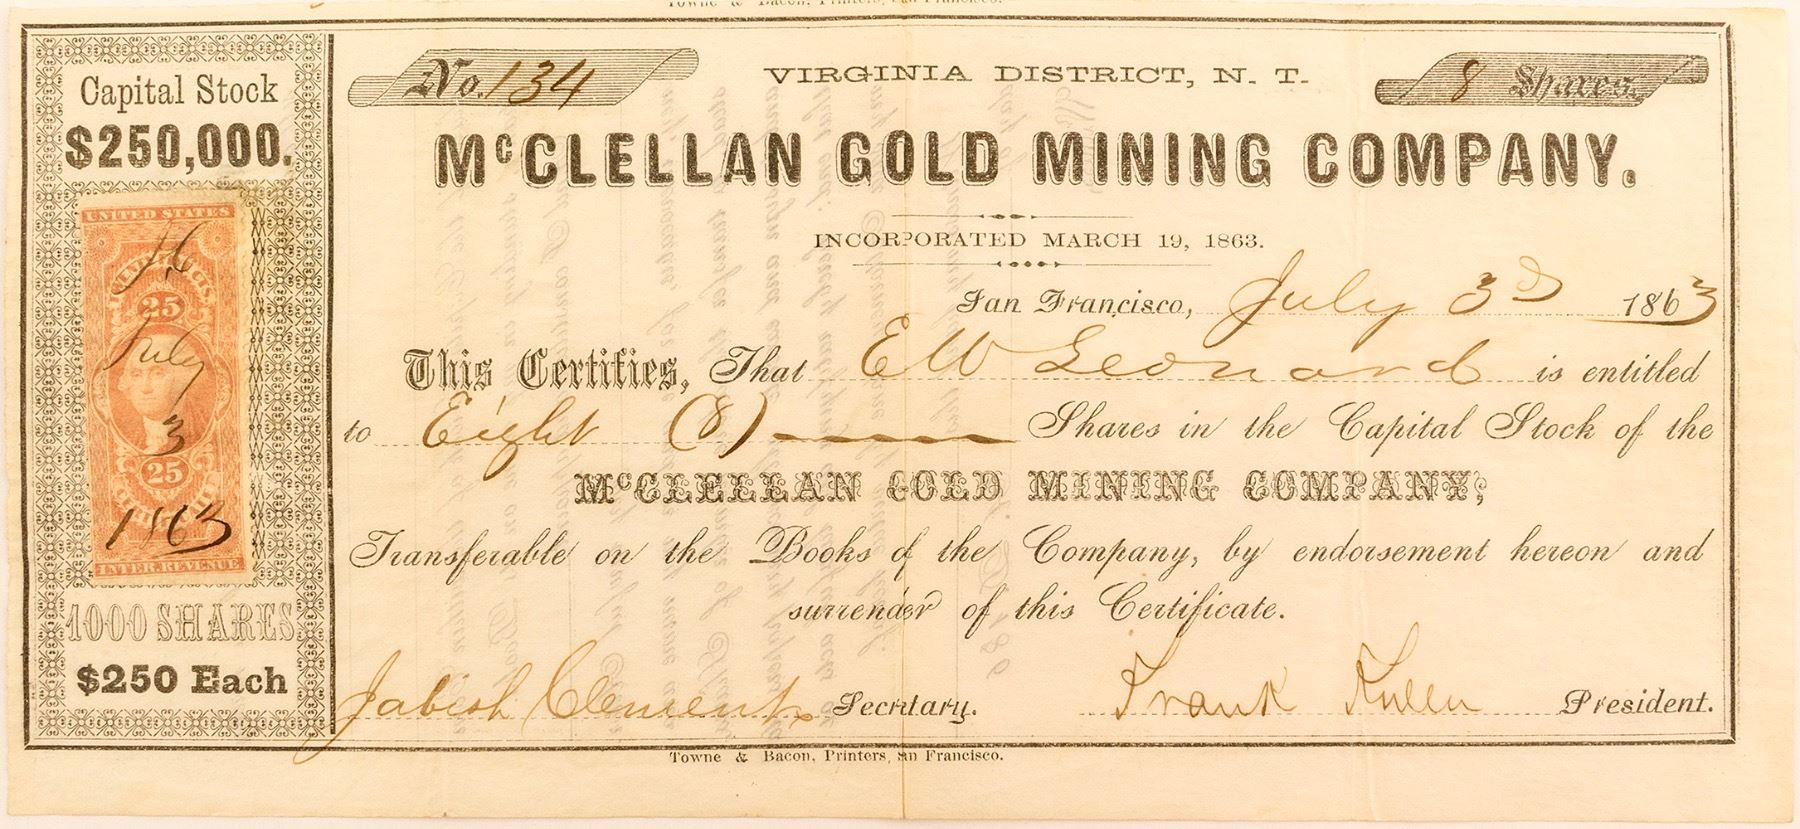 Towne & Bacon, Printers, San Francisco.
Capital Stock
$250,000.
UNITED STATES
25
25
INTER. REVENUE
July
3
1863
1000 SHARES
$250 Each
No. 134
VIRGINIA DISTRICT, N. T.
8 Shares.
McCLELLAN GOLD MINING COMPANY.
INCORPORATED MARCH 19, 1863.
San Francisco, July 3d 1863
This Certifies, That E W Leonard is entitled
to Eight (8) Shares in the Capital Stock of the
McCLELLAN GOLD MINING COMPANY;
Transferable on the Books of the Company, by endorsement hereon and
surrender of this Certificate.
Jabish Clement Secretary. Frank President.
Towne & Bacon, Printers, San Francisco.